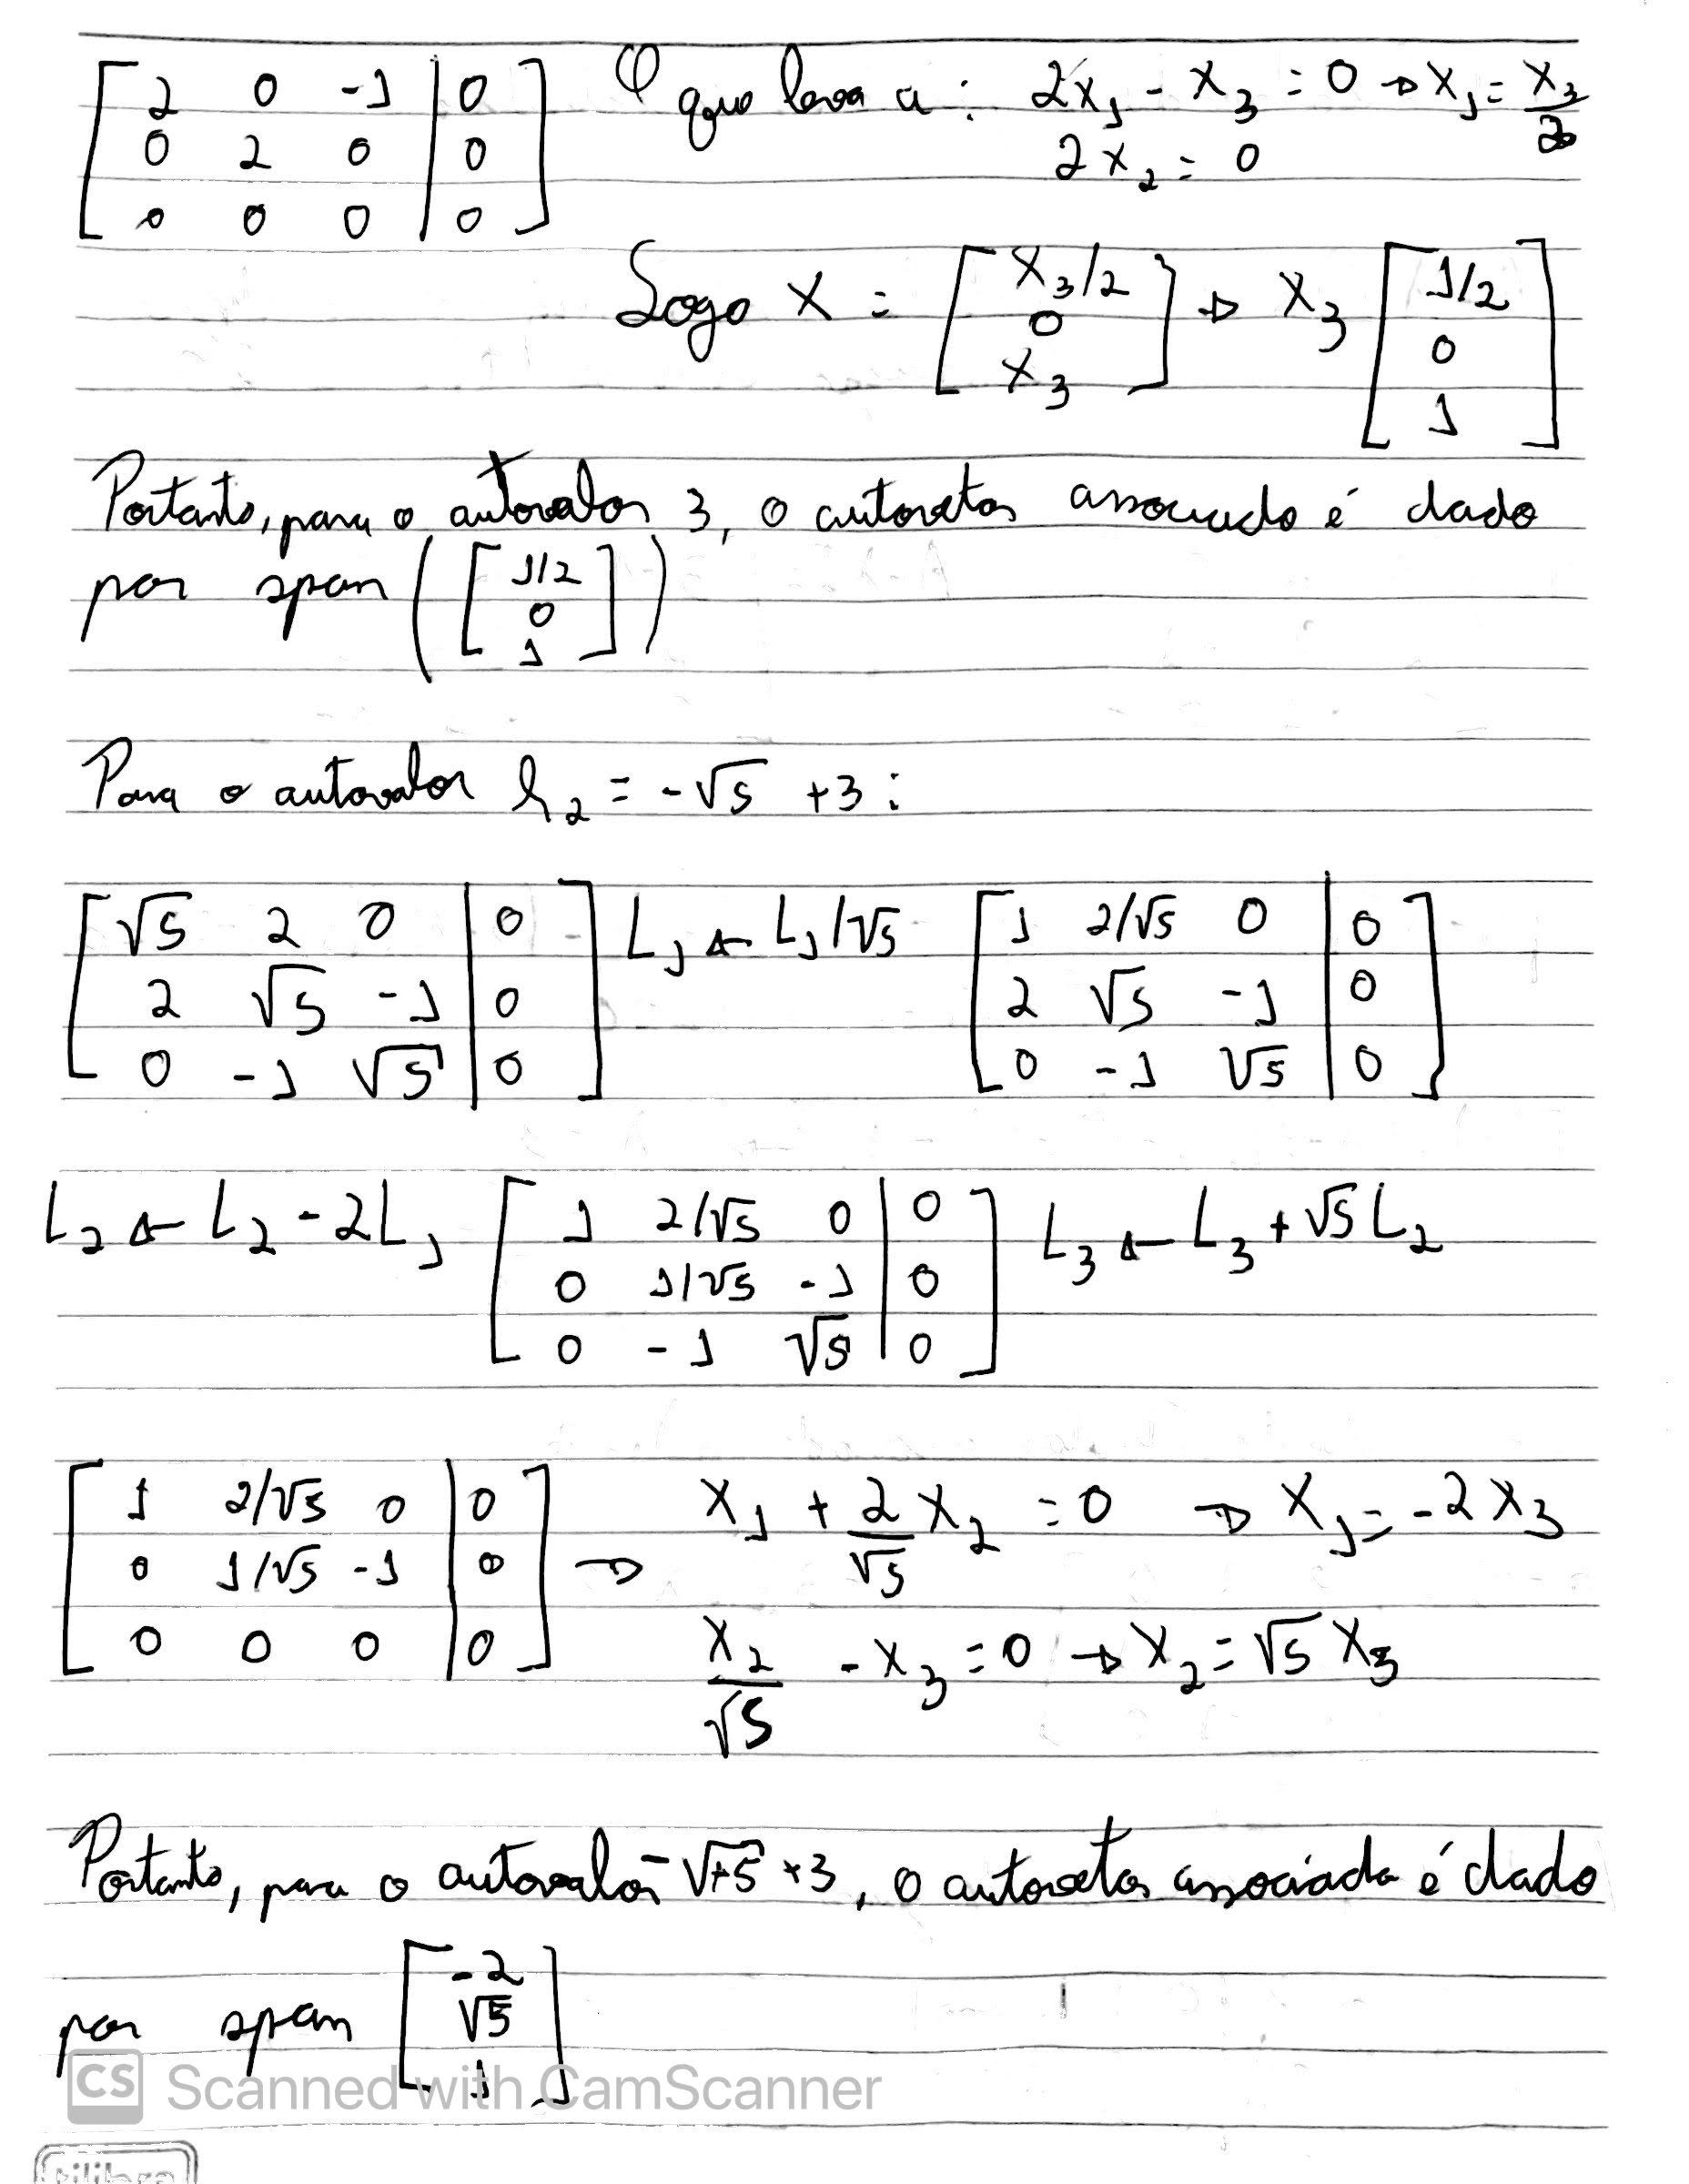 [2 0 -1 | 0] O que leva a: 2x₁ - x₃ = 0 → x₁ = x₃/2
[0 2 0 | 0] 2x₂ = 0
[0 0 0 | 0]
Logo X = [x₃/2 0 x₃] → x₃ [1/2 0 1]
Portanto, para o autovalor 3, o autovetor associado é dado
por span ([1/2 0 1])
Para o autovalor λ₂ = -√5 +3:
[√5 2 0 | 0] L₁ ← L₁/√5 [1 2/√5 0 | 0]
[2 √5 -1 | 0] [2 √5 -1 | 0]
[0 -1 √5 | 0] [0 -1 √5 | 0]
L₂ ← L₂ - 2L₁ [1 2/√5 0 | 0] L₃ ← L₃ + √5 L₂
[0 1/√5 -1 | 0]
[0 -1 √5 | 0]
[1 2/√5 0 | 0] → x₁ + 2/√5 x₂ = 0 → x₁ = -2x₃
[0 1/√5 -1 | 0]
[0 0 0 | 0] x₂/√5 - x₃ = 0 → x₂ = √5 x₃
Portanto, para o autovalor -√5 +3, o autovetor associado é dado
por span [-2 √5 1]
CS Scanned with CamScanner
tilibra